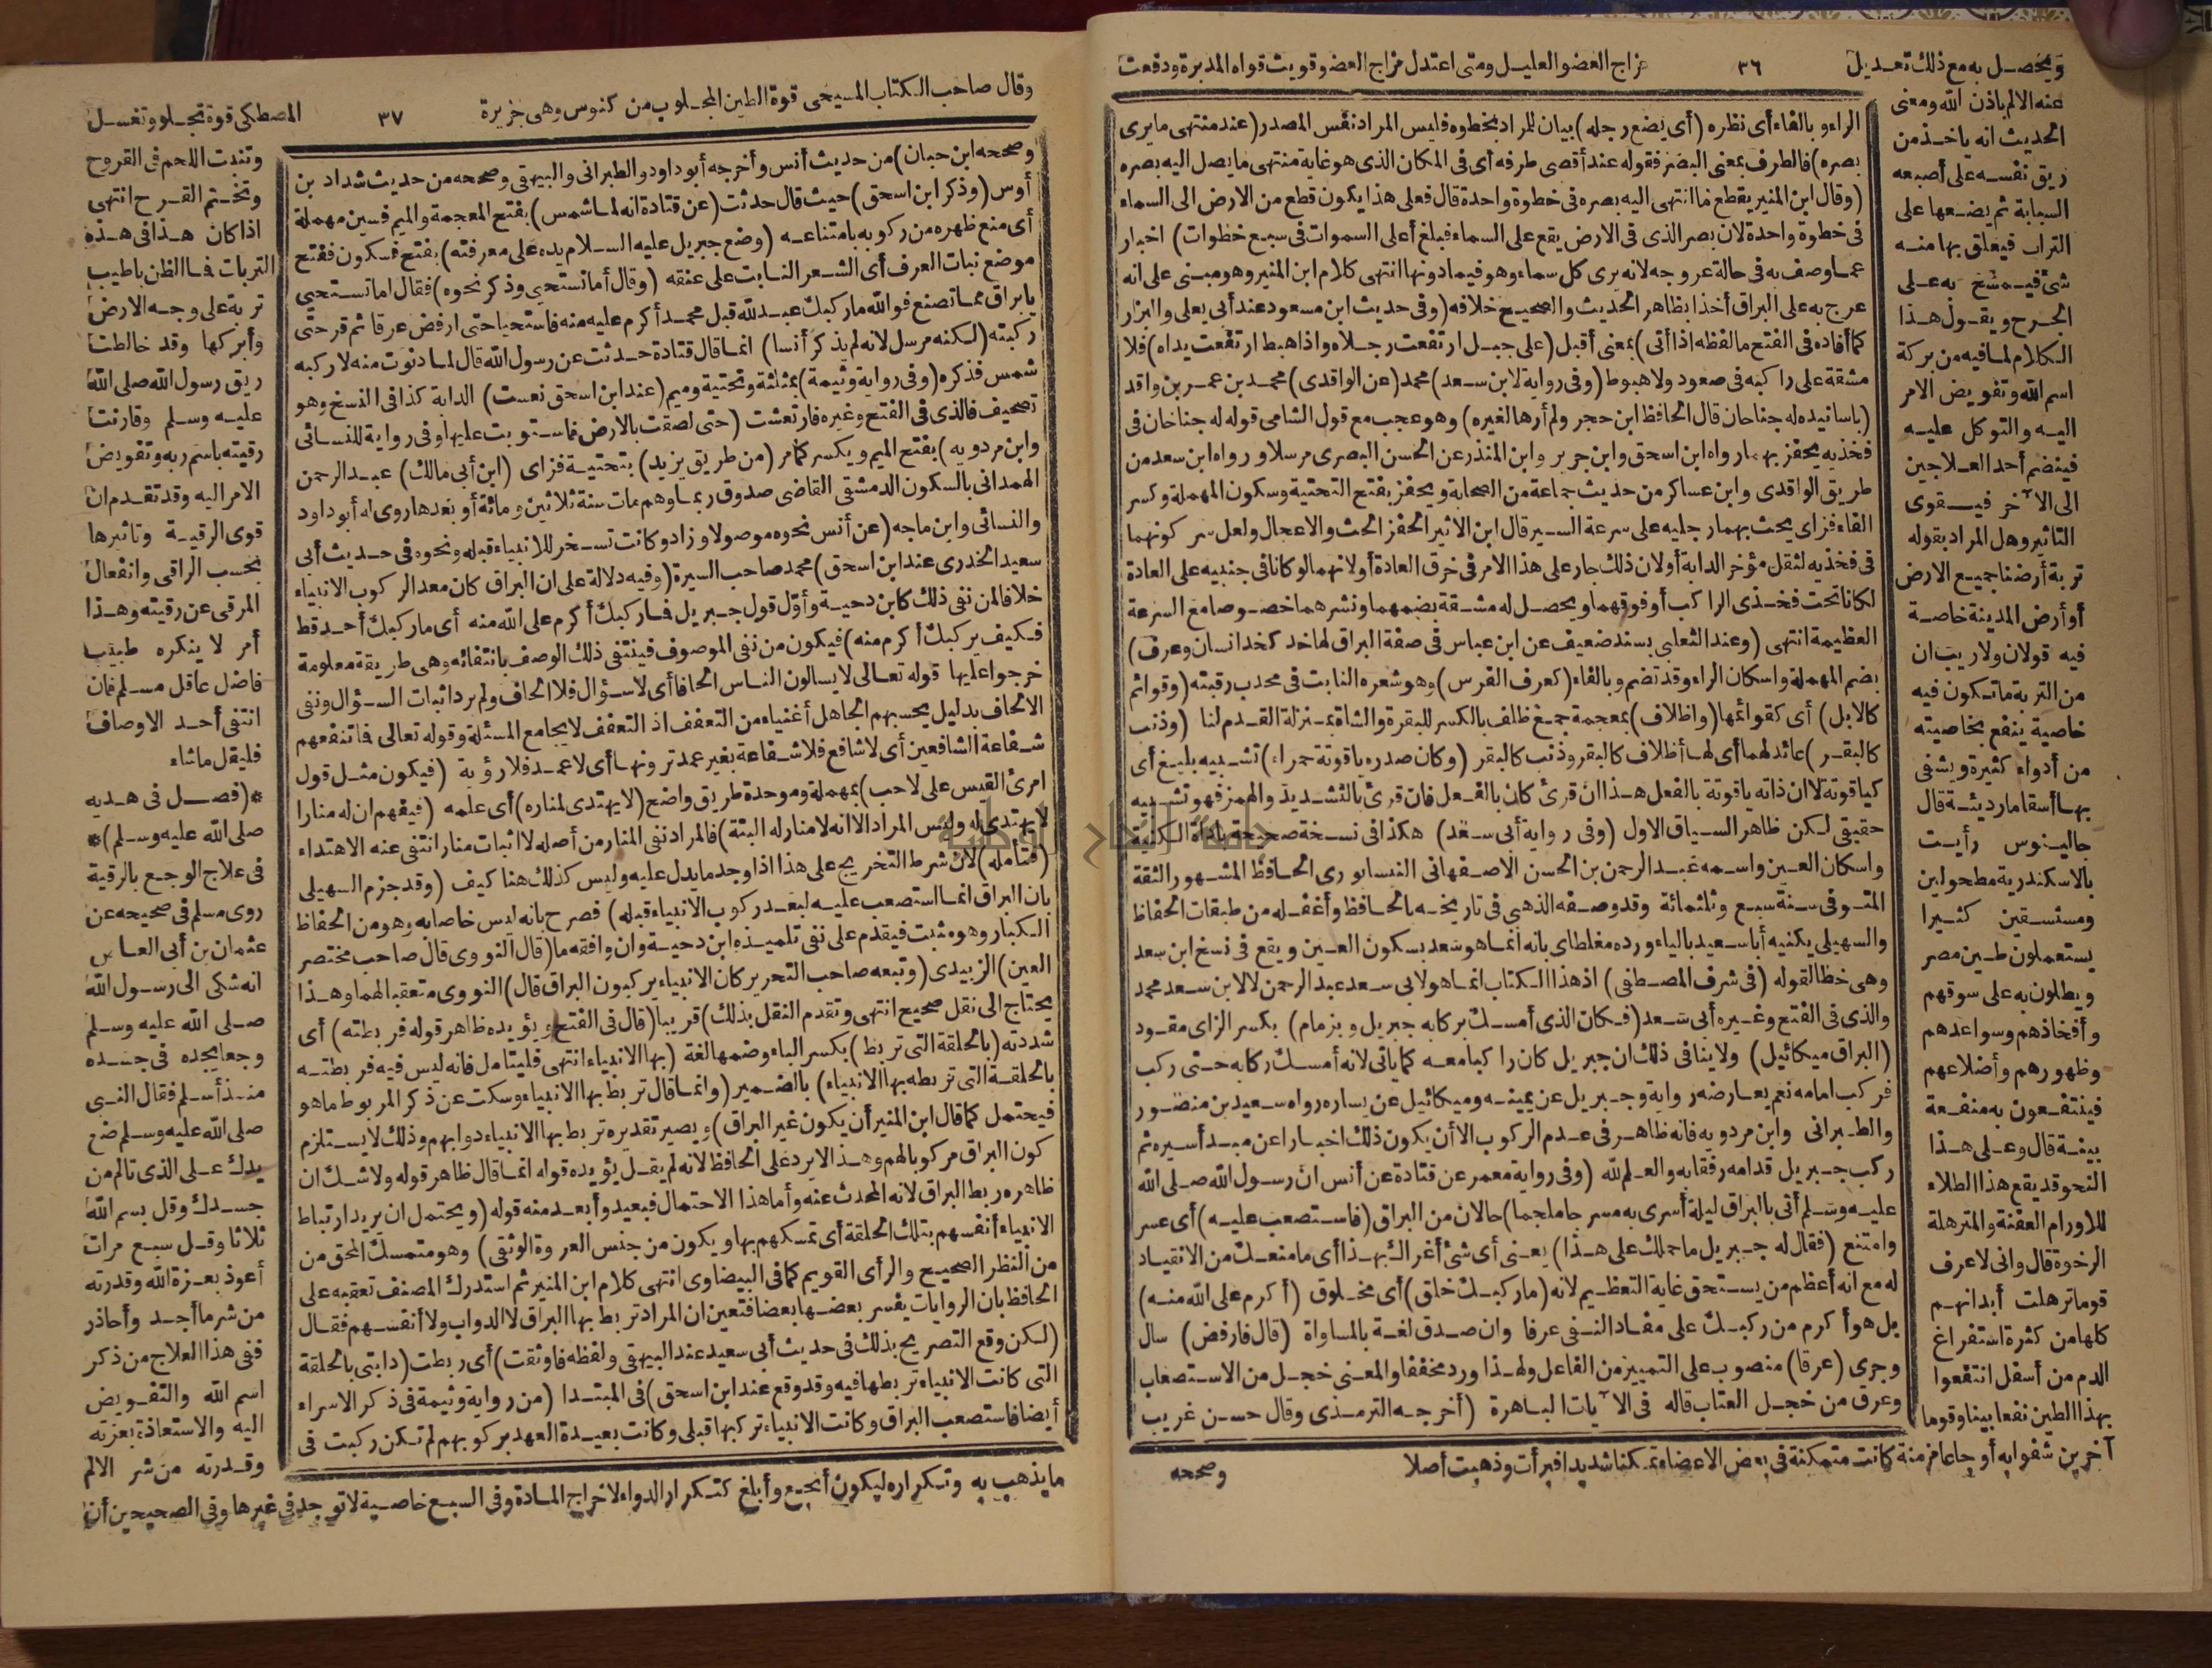 ويحصل به مع ذلك تعديل ٣٦ مزاج العضو العليل ومتى اعتدل مزاج العضو قويت قواه المدبرة ودفعت
عنه الالم باذن الله ومعنى
الحديث انه ياخذ من
ريق نفسه على أصبعه
السبابة ثم يضعها على
التراب فيعلق بها منه
شئ فيمسح به على
الجرح ويقول هذا
الكلام لما فيه من بركة
اسم الله وتفويض الامر
اليه والتوكل عليه
فينضم أحد العلاجين
الى الآخر فيقوى
التاثير وهل المراد بقوله
تربة أرضنا جميع الارض
أو أرض المدينة خاصة
فيه قولان ولا ريب ان
من التربة ما تكون فيه
خاصية ينفع بخاصيته
من أدواء كثيرة ويشفى
بها أسقاما رديئة قال
جالينوس رأيت
بالاسكندرية مطحولين
ومستسقين كثيرا
يستعملون طين مصر
ويطلون به على سوقهم
وأفخاذهم وسواعدهم
وظهورهم وأضلاعهم
فينتفعون به منفعة
بينة قال وعلى هذا
النحو قد يقع هذا الطلاء
للاورام العفنة والمترهلة
الرخوة قال وانى لاعرف
قوما ترهلت أبدانهم
كلها من كثرة استفراغ
الدم من أسفل انتفعوا
بهذا الطين نفعا بينا وقوما
آخرين شفوا به أوجاعا مزمنة كانت متمكنة فى بعض الاعضاء تمكنا شديدا فبرأت وذهبت أصلا
الراء وبالفاء أى نظره (أى يضع رجله) بيان للمراد بخطوه فليس المراد نفس المصدر (عند منتهى ما يرى
بصره) فالطرف بمعنى البصر فقوله عند أقصى طرفه أى فى المكان الذى هو غاية منتهى ما يصل اليه بصره
(وقال ابن المنير يقطع ما انتهى اليه بصره فى خطوة واحدة قال فعلى هذا يكون قطع من الارض الى السماء
فى خطوة واحدة لان بصر الذى فى الارض يقع على السماء فبلغ أعلى السموات فى سبع خطوات) اخبار
عما وصف به فى حالة عروجه لانه يرى كل سماء وهو فيما دونها انتهى كلام ابن المنير وهو مبنى على انه
عرج به على البراق أخذا بظاهر الحديث والصحيح خلافه (وفى حديث ابن مسعود عند أبى يعلى والبزار
كما أفاده فى الفتح ما لفظه اذا أتى) بمعنى أقبل (على جبل ارتفعت رجلاه واذا هبط ارتفعت يداه) فلا
مشقة على راكبه فى صعود ولا هبوط (وفى رواية لابن سعد) محمد (عن الواقدى) محمد بن عمر بن واقد
(باسانيده له جناحان قال الحافظ ابن حجر ولم أرها لغيره) وهو عجب مع قول الشامى قوله له جناحان فى
فخذيه يحفز بهما رواه ابن اسحق وابن جرير وابن المنذر عن الحسن البصرى مرسلا ورواه ابن سعد من
طريق الواقدى وابن عساكر من حديث جماعة من الصحابة ويحفز بفتح التحتية وسكون المهملة وكسر
الفاء فزاى يحث بهما رجليه على سرعة السير قال ابن الاثير الحفز الحث والاعجال ولعل سر كونهما
فى فخذيه لثقل مؤخر الدابة أو لان ذلك جار على هذا الامر فى خرق العادة أو لانهما لو كانا فى جنبيه على العادة
لكانا تحت فخذى الراكب أو فوقهما ويحصل له مشقة بضمهما ونشرهما خصوصا مع السرعة
العظيمة انتهى (وعند الثعلبى بسند ضعيف عن ابن عباس فى صفة البراق لها خد كخد انسان وعرف)
بضم المهملة واسكان الراء وقد تضم وبالفاء (كعرف الفرس) وهو شعره النابت فى محدب رقبته (وقوائم
كالابل) أى كقوائمها (واظلاف) بمعجمة جمع ظلف بالكسر للبقرة والشاة بمنزلة القدم لنا (وذنب
كالبقر) عائد لهما أى لها أظلاف كالبقر وذنب كالبقر (وكان صدره ياقوتة حمراء) تشبيه بليغ أى
كياقوتة لا ان ذاته ياقوتة بالفعل هذا ان قرئ كان بالفعل فان قرئ بالتشديد والهمز فهو تشبيه
حقيقى لكن ظاهر السياق الاول (وفى رواية أبى سعد) هكذا فى نسخة صحيحة باداة الكنية
واسكان العين واسمه عبد الرحمن بن الحسن الاصفهانى النيسابورى الحافظ المشهور الثقة
المتوفى سنة سبع وثلثمائة وقد وصفه الذهبى فى تاريخه بالحافظ وأغفله من طبقات الحفاظ
والسهيلى يكنيه أبا سعيد بالياء ورده مغلطاى بانه انما هو سعد بسكون العين ويقع فى نسخ ابن سعد
وهى خطا لقوله (فى شرف المصطفى) اذ هذا الكتاب انما هو لابى سعد عبد الرحمن لا لابن سعد محمد
والذى فى الفتح وغيره أبى سعد (فكان الذى أمسك بركابه جبريل وبزمام) بكسر الزاى مقود
(البراق ميكائيل) ولا ينافى ذلك ان جبريل كان راكبا معه كما ياتى لانه أمسك ركابه حتى ركب
فركب امامه نعم يعارضه رواية وجبريل عن يمينه وميكائيل عن يساره رواه سعيد بن منصور
والطبرانى وابن مردويه فانه ظاهر فى عدم الركوب الا أن يكون ذلك اخبارا عن مبدأ سيره ثم
ركب جبريل قدامه رفقا به والعلم لله (وفى رواية معمر عن قتادة عن أنس ان رسول الله صلى الله
عليه وسلم أتى بالبراق ليلة أسرى به مسرجا ملجما) حالان من البراق (فاستصعب عليه) أى عسر
وامتنع (فقال له جبريل ما حملك على هذا) يعنى أى شئ أغراك بهذا أى ما منعك من الانقياد
له مع انه أعظم من يستحق غاية التعظيم لانه (ما ركبك خلق) أى مخلوق (أكرم على الله منه)
بل هو أكرم من ركبك على مفاد النفى عرفا وان صدق لغة بالمساواة (قال فارفض) سال
وجرى (عرقا) منصوب على التمييز من الفاعل ولهذا ورد مخففا والمعنى خجل من الاستصعاب
وعرق من خجل العتاب قاله فى الآيات الباهرة (أخرجه الترمذى وقال حسن غريب
وصححه
وقال صاحب الكتاب المسيحى قوة الطين المجلوب من كنوس وهى جزيرة ٣٧ المصطكى قوة تجلو وتغسل
وتنبت اللحم فى القروح
وتختم القرح انتهى
اذا كان هذا فى هذه
التربات فما الظن باطيب
تربة على وجه الارض
وأبركها وقد خالطت
ريق رسول الله صلى الله
عليه وسلم وقارنت
رقيته باسم ربه وتفويض
الامر اليه وقد تقدم ان
قوى الرقية وتاثيرها
بحسب الراقى وانفعال
المرقى عن رقيته وهذا
أمر لا ينكره طبيب
فاضل عاقل مسلم فان
انتفى أحد الاوصاف
فليقل ما شاء
*(فصل فى هديه
صلى الله عليه وسلم)*
فى علاج الوجع بالرقية
روى مسلم فى صحيحه عن
عثمان بن أبى العاص
انه شكى الى رسول الله
صلى الله عليه وسلم
وجعا يجده فى جسده
منذ أسلم فقال النبى
صلى الله عليه وسلم ضع
يدك على الذى تالم من
جسدك وقل بسم الله
ثلاثا وقل سبع مرات
أعوذ بعزة الله وقدرته
من شر ما أجد وأحاذر
ففى هذا العلاج من ذكر
اسم الله والتفويض
اليه والاستعاذة بعزته
وقدرته من شر الالم
ما يذهب به وتكراره ليكون أنجع وأبلغ كتكرار الدواء لاخراج المادة وفى السبع خاصية لا توجد فى غيرها وفى الصحيحين أن
وصححه ابن حبان) من حديث أنس وأخرجه أبو داود والطبرانى والبيهقى وصححه من حديث شداد بن
أوس (وذكر ابن اسحق) حيث قال حدثت (عن قتادة انه لما شمس) بفتح المعجمة والميم فسين مهملة
أى منع ظهره من ركوبه بامتناعه (وضع جبريل عليه السلام يده على معرفته) بفتح فسكون ففتح
موضع نبات العرف أى الشعر النابت على عنقه (وقال أما تستحيى وذكر نحوه) فقال اما تستحيى
يا براق مما تصنع فو الله ما ركبك عبد لله قبل محمد أكرم عليه منه فاستحيا حتى ارفض عرقا ثم قر حتى
ركبته (لكنه مرسل لانه لم يذكر أنسا) انما قال قتادة حدثت عن رسول الله قال لما دنوت منه لاركبه
شمس فذكره (وفى رواية وثيمة) بمثلثة وتحتية وميم (عند ابن اسحق نعست) الدابة كذا فى النسخ وهو
تصحيف فالذى فى الفتح وغيره فارتعشت (حتى لصقت بالارض فاستويت عليها وفى رواية للنسائى
وابن مردويه) بفتح الميم ويكسر كما مر (من طريق يزيد) بتحتية فزاى (ابن أبى مالك) عبد الرحمن
الهمدانى بالسكون الدمشقى القاضى صدوق ربما وهم مات سنة ثلاثين ومائة أو بعدها روى له أبو داود
والنسائى وابن ماجه (عن أنس نحوه موصولا وزاد وكانت تسخر للانبياء قبله ونحوه فى حديث أبى
سعيد الخدرى عند ابن اسحق) محمد صاحب السيرة (وفيه دلالة على ان البراق كان معد الركوب الانبياء
خلافا لمن نفى ذلك كابن دحية وأول قول جبريل فما ركبك أكرم على الله منه أى ما ركبك أحد قط
فكيف يركبك أكرم منه) فيكون من نفى الموصوف فينتفى ذلك الوصف بانتفائه وهى طريقة معلومة
خرجوا عليها قوله تعالى لا يسالون الناس الحافا أى لا سؤال فلا الحاف ولم يرد اثبات السؤال ونفى
الالحاف بدليل يحسبهم الجاهل أغنياء من التعفف اذ التعفف لا يجامع المسئلة وقوله تعالى فما تنفعهم
شفاعة الشافعين أى لا شافع فلا شفاعة بغير عمد ترونها أى لا عمد فلا رؤية (فيكون مثل قول
امرئ القيس على لاحب) بمهملة وموحدة طريق واضح (لا يهتدى لمناره) أى علمه (فيفهم ان له منارا
لا يهتدى له وليس المراد الا انه لا منار له البتة) فالمراد نفى المنار من أصله لا اثبات منار انتفى عنه الاهتداء
(فتأمله) لان شرط التخريج على هذا اذا وجد ما يدل عليه وليس كذلك هنا كيف (وقد جزم السهيلى
بان البراق انما استصعب عليه لبعد ركوب الانبياء قبله) فصرح بانه ليس خاصا به وهو من الحفاظ
الكبار وهو مثبت فيقدم على نفى تلميذه ابن دحية وان وافقه ما (قال النووى قال صاحب مختصر
العين) الزبيدى (وتبعه صاحب التحرير كان الانبياء يركبون البراق قال) النووى متعقبا لهما وهذا
يحتاج الى نقل صحيح انتهى وتقدم النقل بذلك) قريبا (قال فى الفتح ويؤيده ظاهر قوله فربطته) أى
شددته (بالحلقة التى تربط) بكسر الباء وضمها لغة (بها الانبياء انتهى فليتامل فانه ليس فيه فربطته
بالحلقة التى تربطه بها الانبياء) بالضمير (وانما قال تربط بها الانبياء وسكت عن ذكر المربوط ما هو
فيحتمل كما قال ابن المنير أن يكون غير البراق) ويصير تقديره تربط بها الانبياء دوابهم وذلك لا يستلزم
كون البراق مركوبا لهم وهذا لا يرد على الحافظ لانه لم يقل يؤيده قوله انما قال ظاهر قوله ولا شك ان
ظاهره ربط البراق لانه المحدث عنه وأما هذا الاحتمال فبعيد وأبعد منه قوله (ويحتمل ان يريد ارتباط
الانبياء أنفسهم بتلك الحلقة أى تمسكهم بها ويكون من جنس العروة الوثقى) وهو متمسك المحق من
من النظر الصحيح والرأى القويم كما فى البيضاوى انتهى كلام ابن المنير ثم استدرك المصنف تعقبه على
الحافظ بان الروايات يفسر بعضها بعضا فتعين ان المراد تربط بها البراق لا الدواب ولا أنفسهم فقال
(لكن وقع التصريح بذلك فى حديث أبى سعيد عند البيهقى ولفظه فاوثقت) أى ربطت (دابتى بالحلقة
التى كانت الانبياء تربطها فيه وقد وقع عند ابن اسحق) فى المبتدا (من رواية وثيمة فى ذكر الاسراء
أيضا فاستصعب البراق وكانت الانبياء تركبها قبلى وكانت بعيدة العهد بركوبهم لم تكن ركبت فى